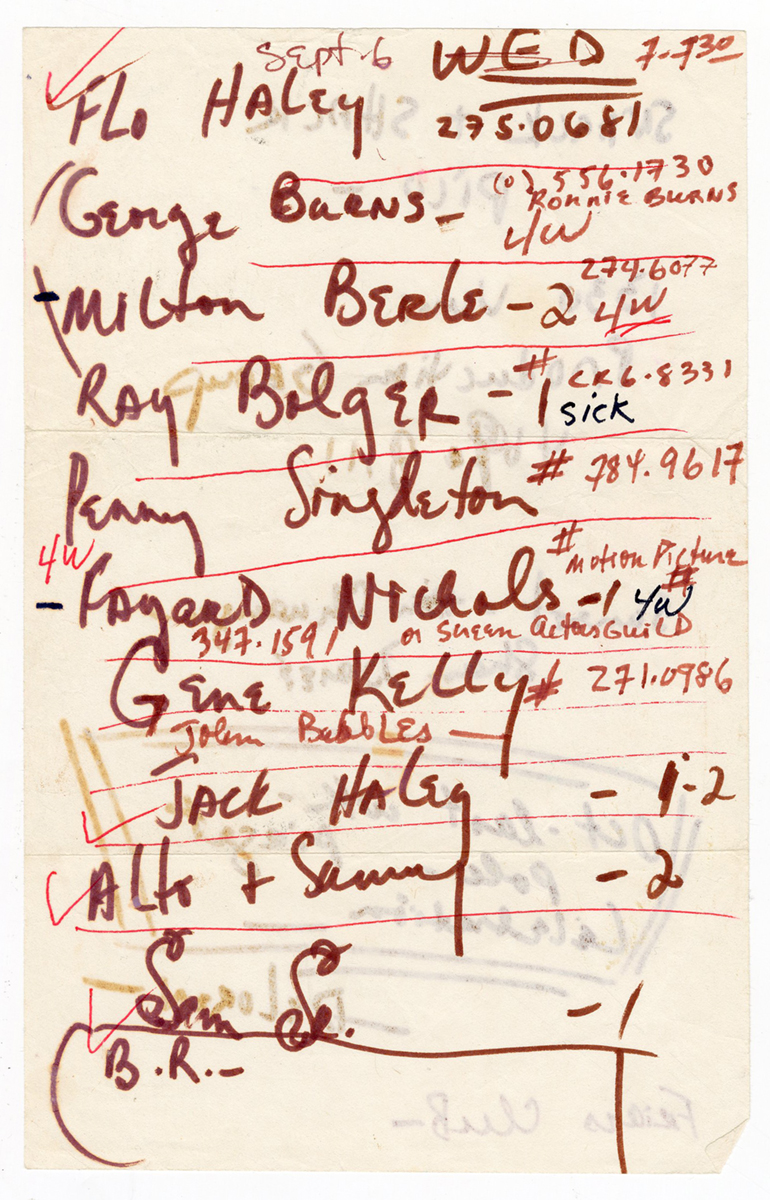 Sept. 6 WED 7-730
Flo HALey 275.0681
George BURNS - (o) 556.1730
RONNIE BURNS
4W
274.6077
MILton BERLE - 2 4W
RAy BOLGER - 1 # CR6.8331
sick
Penny Singleton # 784.9617
4W
# MOtION PictuRE
- FAyARD NichOls - 1 4W #
347.1591 or Screen ActorsGUILD
GENE KELLy # 271.0986
John BubbLES -
JACK HALey - 1-2
Alto + Sammy - 2
Sam Sr. - 1
B.R. -